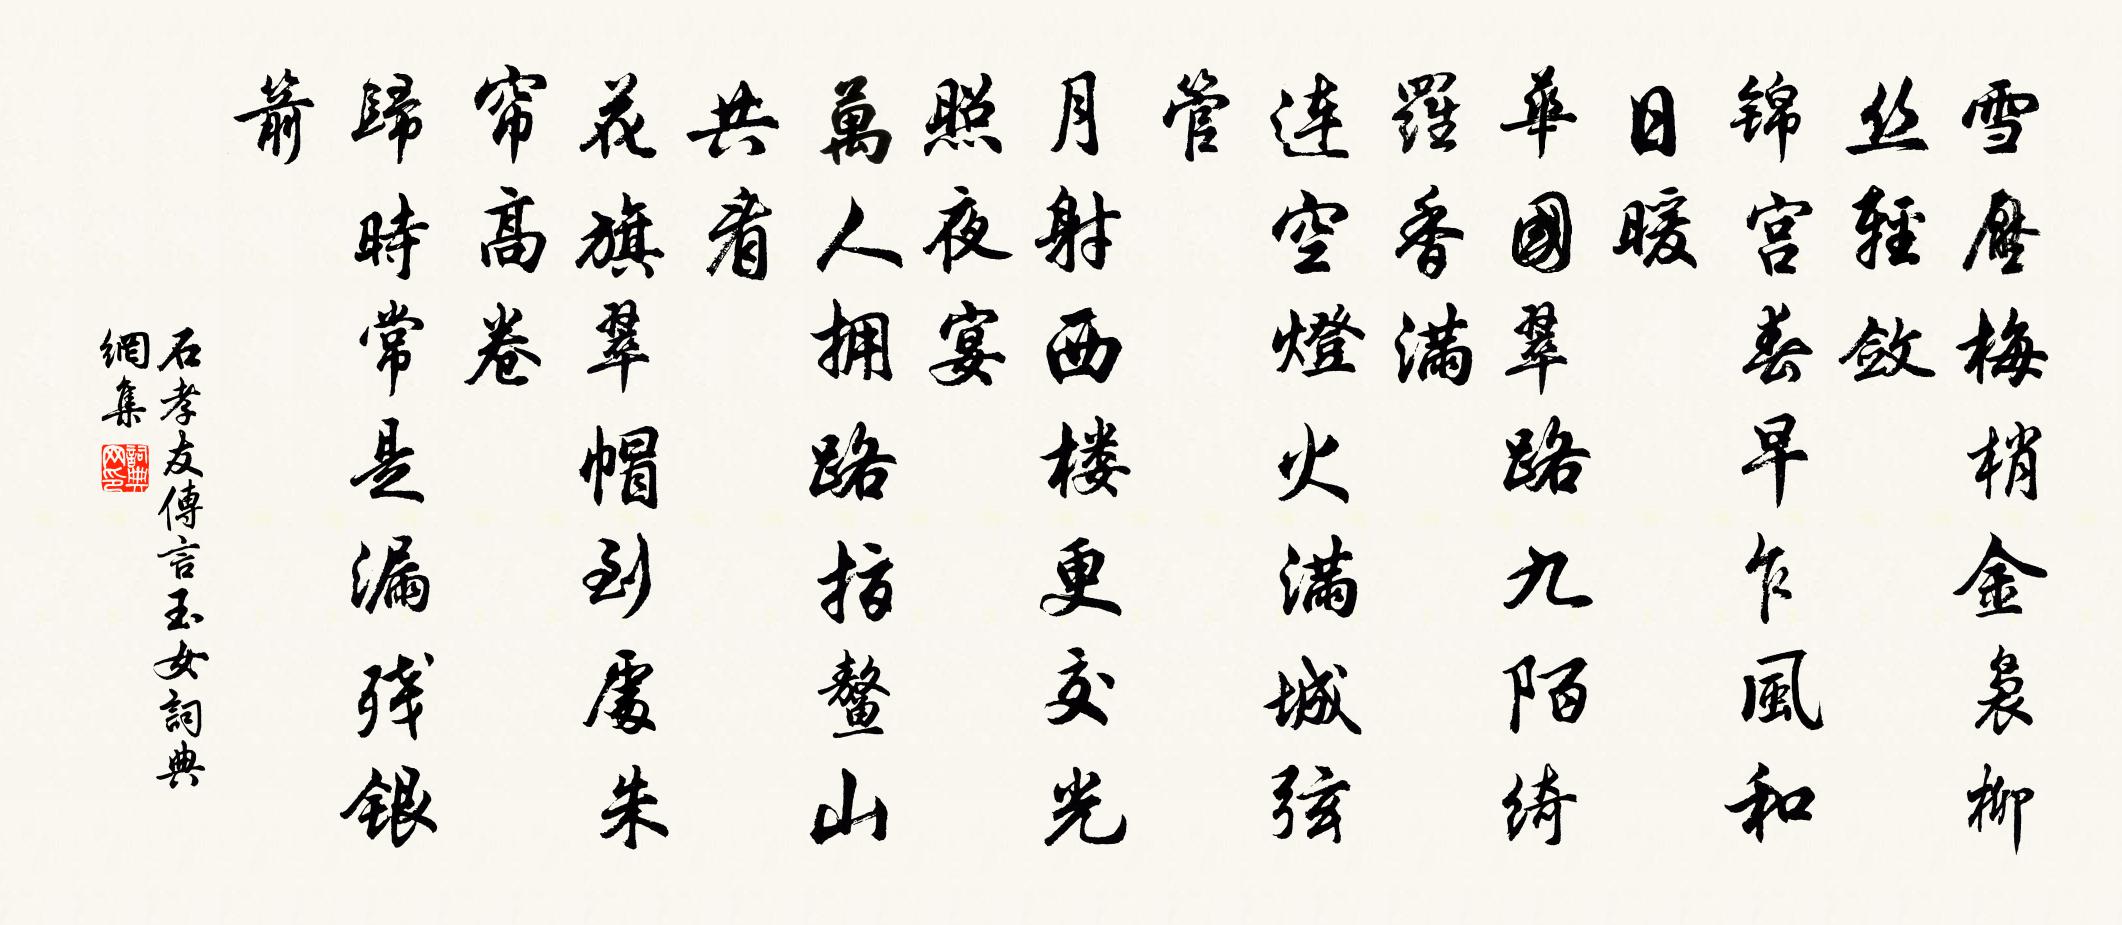 雪壓梅梢金裊柳
丝輕斂
锦宫春早乍風和
日暖
華國翠路九陌绮
羅香滿
连空燈火滿城弦
管
月射西楼更交光
照夜宴
萬人拥路指鳌山
共看
花旗翠帽到處朱
帘高卷
歸時常是漏残銀
箭
石孝友傳言玉女詞典
網集
詞典
网印